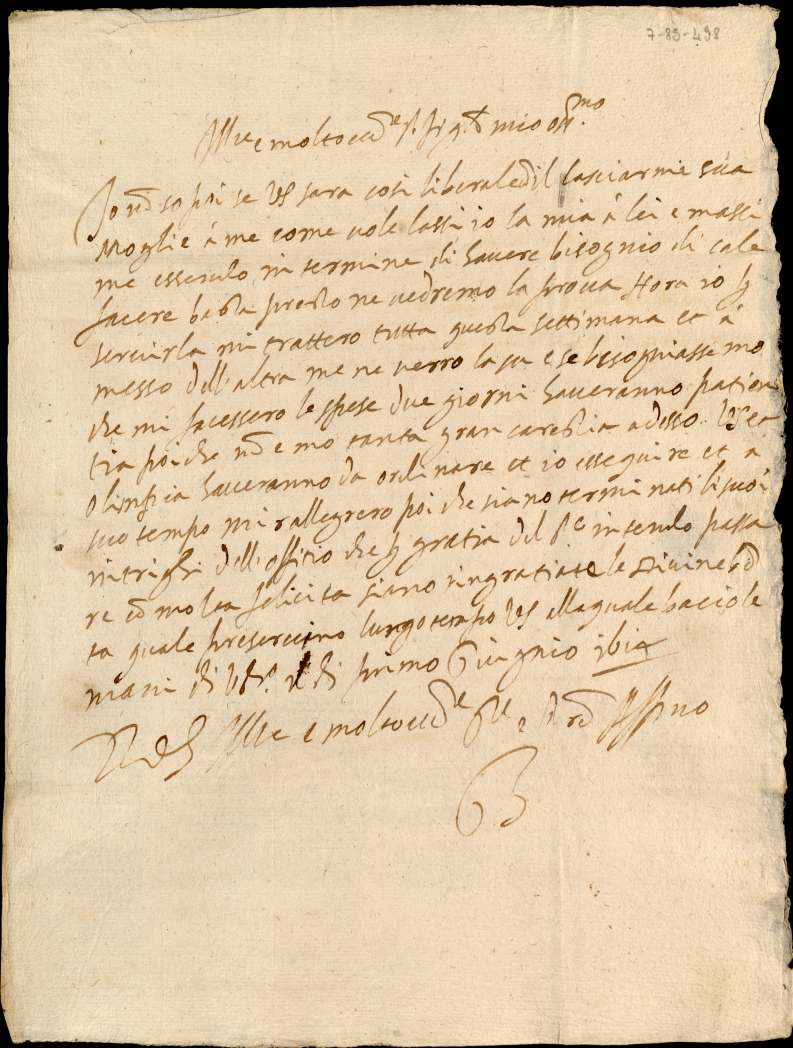 7-85-498
Ill.re e molto ecc.te S.r Sig.r mio oss.mo
Io nõ so poi se VS sara cosi liberale di lasciarmi sua
Moglie á me come vole lassi io la mia á lei e massi
me essendo in termine di havere bisognio di tale
facere basta presto ne vedremo la prova Hora io p
servirla mi trattero tutta questa settimana et á
messo dell'altra me ne verro la su e se bisogniasse mo
che mi facessero le spese due giorni haveranno patien
tia poi che nõ e mo tanta gran carestia adesso. VS et
Olimpia haveranno da ordinare et io esseguire et a
suo tempo mi rallegrero poi che siano terminati li suoi
intrighi dell'offitio che p gratia del S.re intendo passa
re cõ molta felicita siano ringratiate le Divine bõ
ta quale preservino lungo tempo VS alla quale bacio le
mani di di primo Giugnio 1614
Di VS Ill.re e molto ecc.te